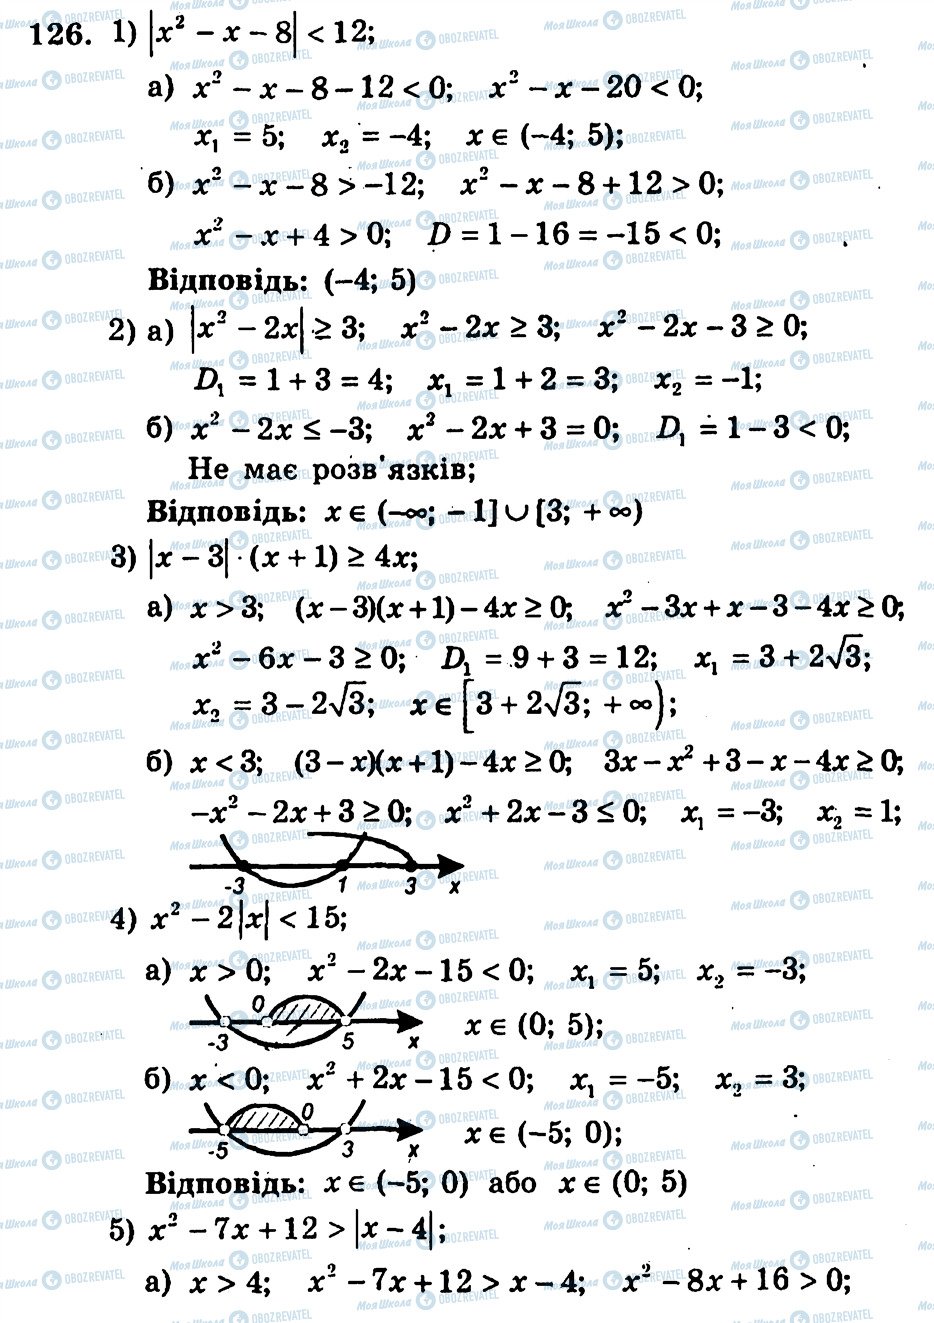 126. 1) |x² − x − 8| < 12;
а) x² − x − 8 − 12 < 0; x² − x − 20 < 0;
x₁ = 5; x₂ = −4; x ∈ (−4; 5);
б) x² − x − 8 > −12; x² − x − 8 + 12 > 0;
x² − x + 4 > 0; D = 1 − 16 = −15 < 0;
Відповідь: (−4; 5)
2) а) |x² − 2x| ≥ 3; x² − 2x ≥ 3; x² − 2x − 3 ≥ 0;
D₁ = 1 + 3 = 4; x₁ = 1 + 2 = 3; x₂ = −1;
б) x² − 2x ≤ −3; x² − 2x + 3 = 0; D₁ = 1 − 3 < 0;
Не має розв'язків;
Відповідь: x ∈ (−∞; −1] ∪ [3; +∞)
3) |x − 3| · (x + 1) ≥ 4x;
а) x > 3; (x − 3)(x + 1) − 4x ≥ 0; x² − 3x + x − 3 − 4x ≥ 0;
x² − 6x − 3 ≥ 0; D₁ = 9 + 3 = 12; x₁ = 3 + 2√3;
x₂ = 3 − 2√3; x ∈ [3 + 2√3; +∞);
б) x < 3; (3 − x)(x + 1) − 4x ≥ 0; 3x − x² + 3 − x − 4x ≥ 0;
−x² − 2x + 3 ≥ 0; x² + 2x − 3 ≤ 0; x₁ = −3; x₂ = 1;
-3 1 3 x
4) x² − 2|x| < 15;
а) x > 0; x² − 2x − 15 < 0; x₁ = 5; x₂ = −3;
-3 0 5 x x ∈ (0; 5);
б) x < 0; x² + 2x − 15 < 0; x₁ = −5; x₂ = 3;
-5 0 3 x x ∈ (−5; 0);
Відповідь: x ∈ (−5; 0) або x ∈ (0; 5)
5) x² − 7x + 12 > |x − 4|;
а) x > 4; x² − 7x + 12 > x − 4; x² − 8x + 16 > 0;